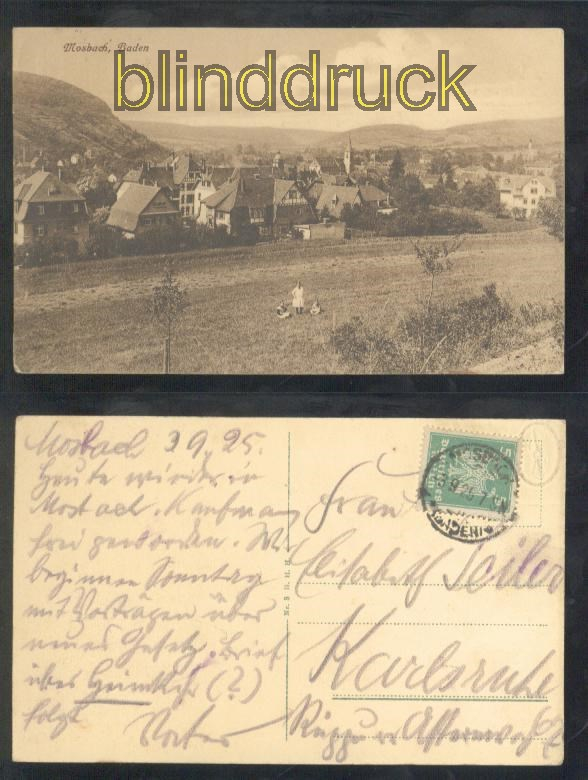 Mosbach, Baden
blinddruck
Mosbach 3 9. 25.
Heute wieder in
Mosbach. Kaufmann
frei geworden. Wir
beginnen Sonntag
mit Vorträgen über
neues Gesetz. Brief
über Heimkehr (?)
folgt Vater
Nr. 3 D. H. H.
Frau
Elisabeth Seiler
Karlsruhe
MOSBACH
(BADEN)